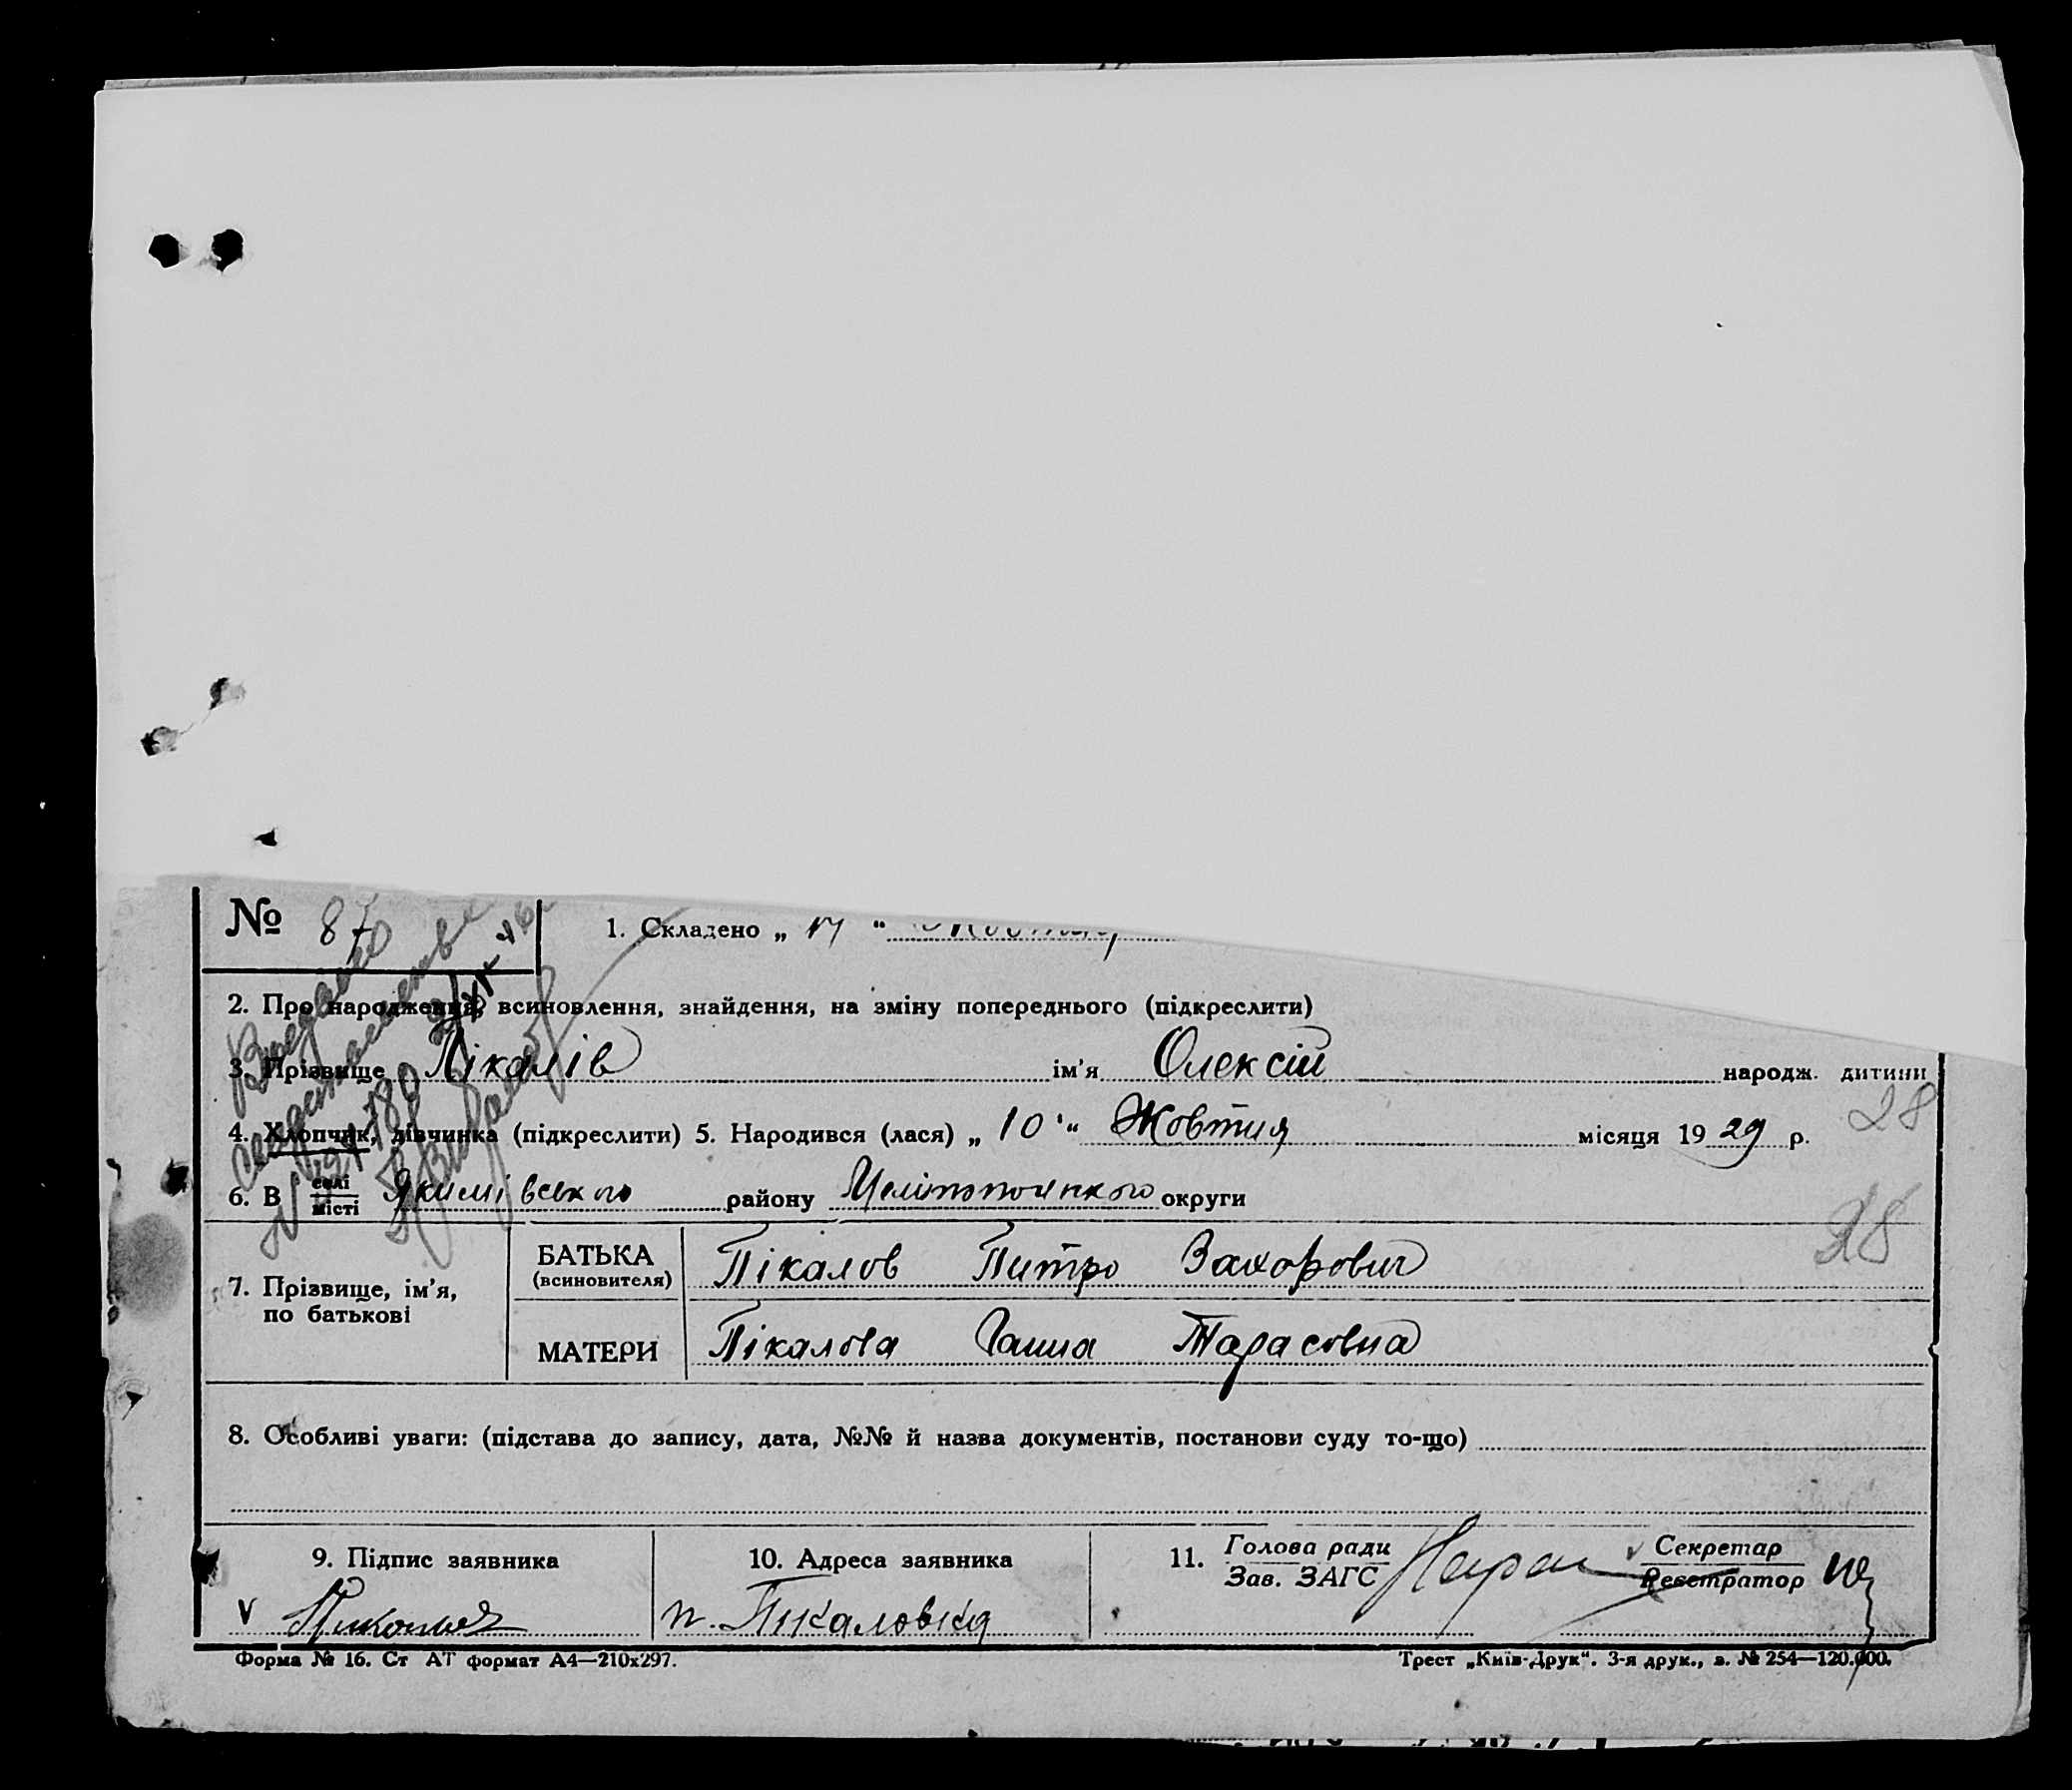 № 87
1. Складено „ 17 “
2. Про народження, всиновлення, знайдення, на зміну попереднього (підкреслити)
3. Прізвище Пікалів ім'я Олексій народж. дитини
4. Хлопчик, дівчинка (підкреслити) 5. Народився (лася) „ 10 “ Жовтня місяця 19 29 р. 28
6. В селі місті Якимівського району округи
28
7. Прізвище, ім'я, по батькові
БАТЬКА (всиновителя) Пікалов Питро Захорович
МАТЕРИ Пікалова Ганна Тарасовна
8. Особливі уваги: (підстава до запису, дата, №№ й назва документів, постанови суду то-що)
9. Підпис заявника 10. Адреса заявника 11. Голова ради Зав. ЗАГС Секретар Реєстратор
V п. Пикаловка
Форма № 16. Ст АТ формат А4—210х297. Трест „Київ-Друк“. 3-я друк., з. № 254—120.000.